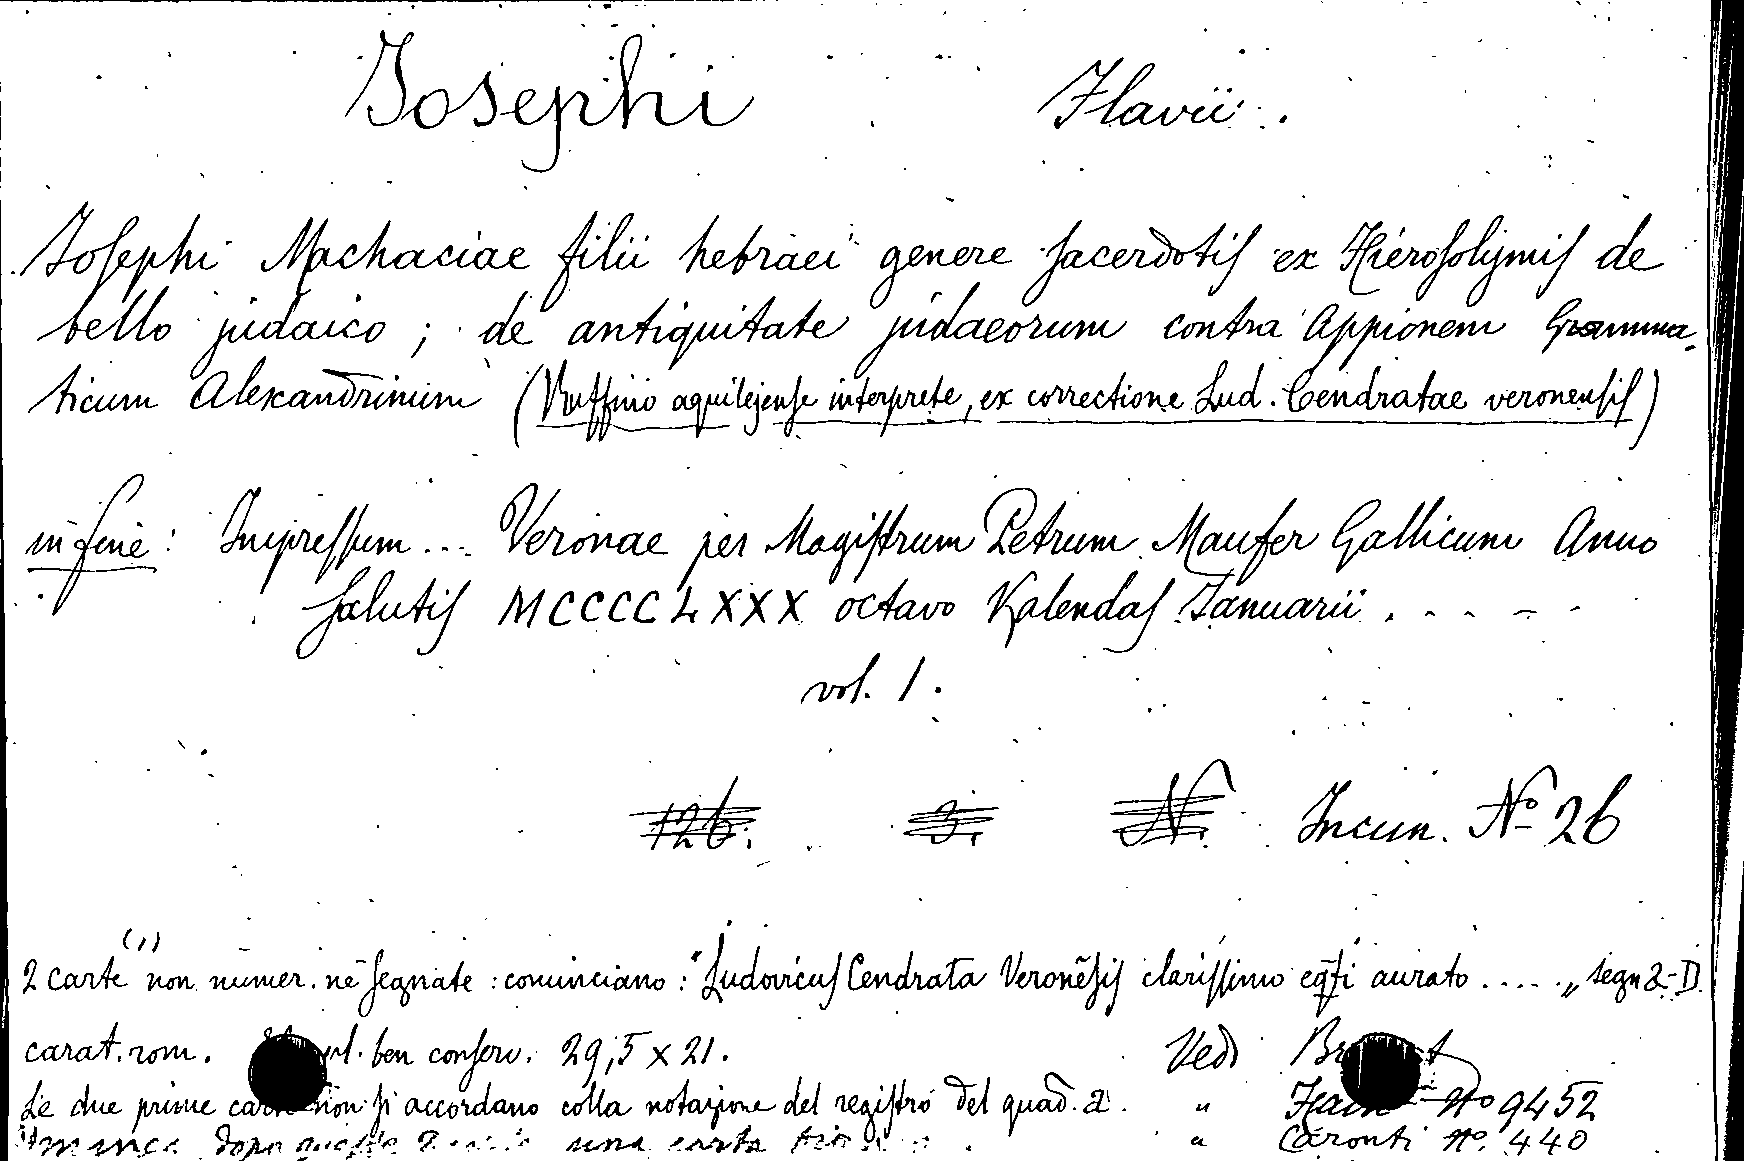 Josephi Flavii.
Josephi Machaciae filii hebraei genere sacerdotis ex Hierosolymis de
bello judaico ; de antiquitate judaeorum contra Appionem Gramma-
ticum Alexandrinum (Ruffino aquilejense interprete, ex correctione Lud. Cendratae veronensis)
in fine : Impressum .... Veronae per Magistrum Petrum Maufer Gallicum Anno
salutis MCCCCLXXX octavo Kalendas Januarii . . . . .
vol. 1.
126. 3. N. Incun. No 26
(1)
2 carte non numer. nè segnate : cominciano : "Ludovicus Cendrata Veronēsis clarissimo eq̃ti aurato ..... „ segn a-D
carat. rom. ben conserv. 29,5 x 21. Vedi
Le due prime carte non si accordano colla notazione del registro del quad. a. " Hain No 9452
manca dopo una carta " Caronti No. 440